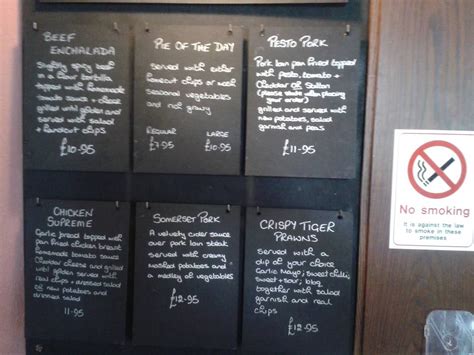 BEEF
ENCHALADA
Slightly spicy beef
in a flour tortilla
topped with homemade
tomato sauce + cheese
grilled until golden and
served with salad
+ handcut chips
£10.95
PIE OF THE DAY
served with either
handcut chips or mash
seasonal vegetables
and hot gravy
REGULAR LARGE
£7.95 £10.95
PESTO PORK
Pork loin pan fried topped
with pesto, tomato +
Cheddar or Stilton
(please state when placing
your order)
grilled and served with
new potatoes, salad
garnish and peas
£11.95
CHICKEN
SUPREME
Garlic bread topped with
pan fried chicken breast
homemade tomato sauce
Cheddar cheese and grilled
until golden served with
chips + dressed salad
or new potatoes and
dressed salad
11.95
SOMERSET PORK
A velvety cider sauce
over pork loin steak
served with creamy
mashed potatoes and
a medley of vegetables
£12.95
CRISPY TIGER
PRAWNS
served with a
dip of your choice
Garlic Mayo; sweet chilli;
sweet + sour; bbq
together with salad
garnish and real
chips
£12.95
No smoking
It is against the law
to smoke in these
premises